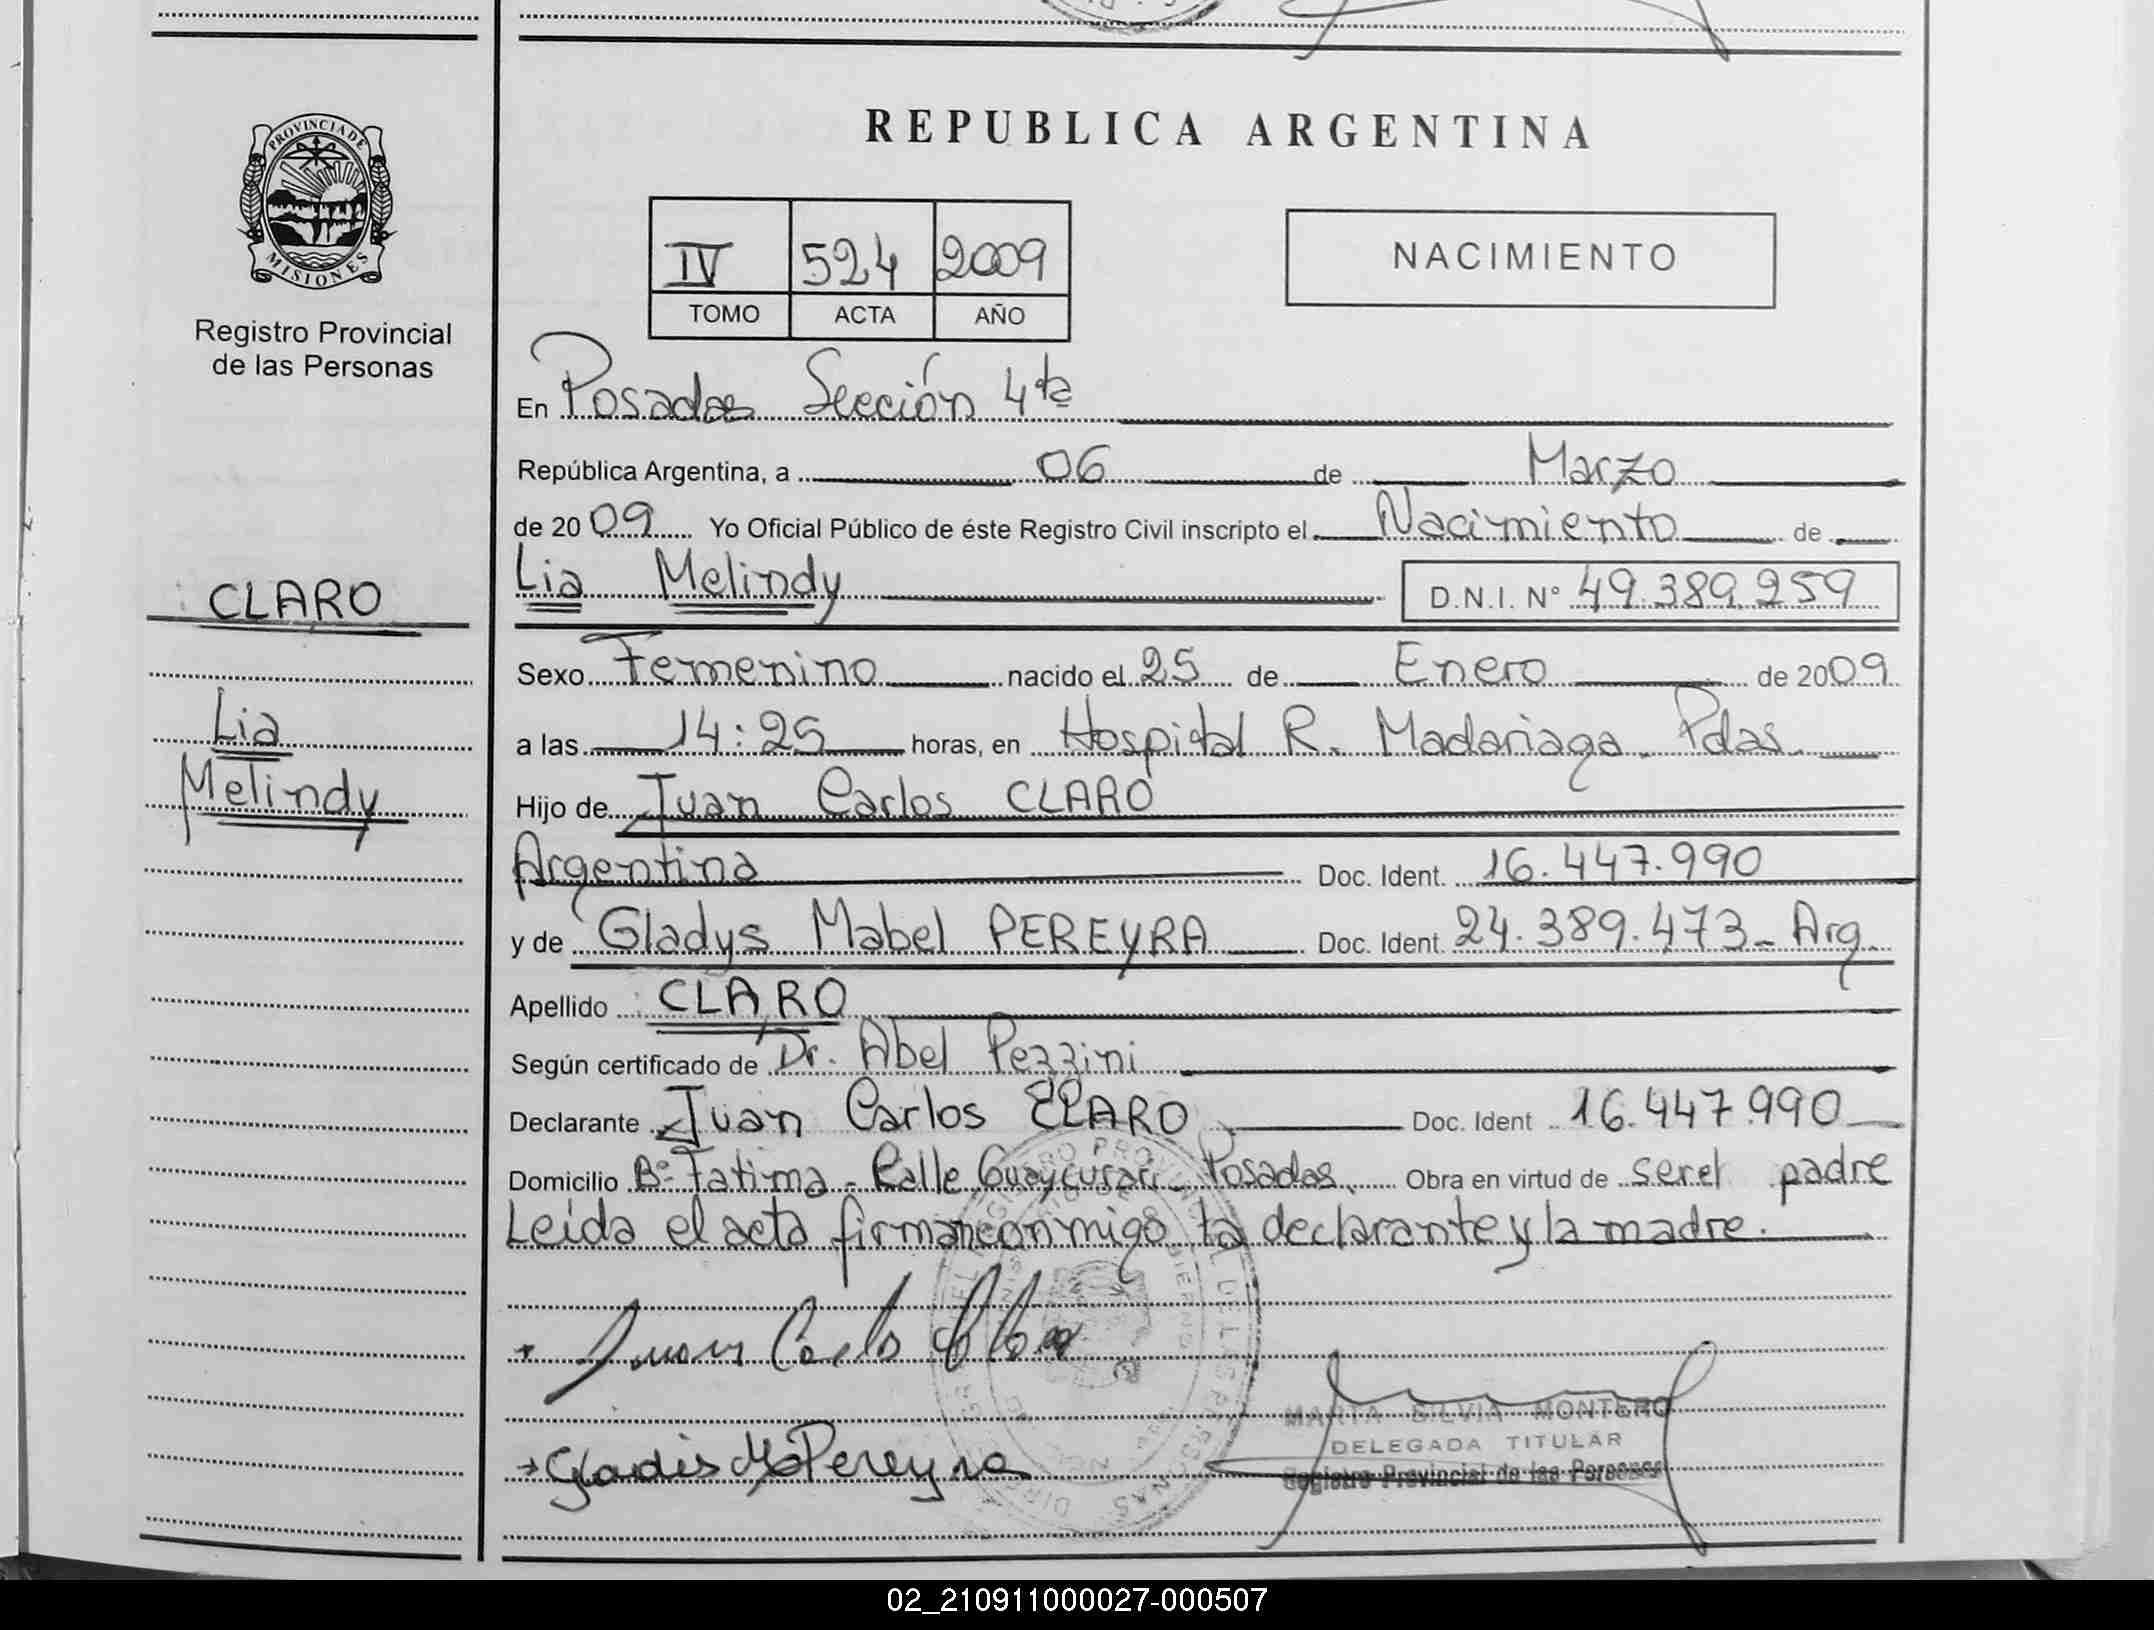 REPUBLICA ARGENTINA
PROVINCIA DE
MISIONES
Registro Provincial
de las Personas
IV 524 2009
TOMO ACTA AÑO
NACIMIENTO
En Posadas Sección 4ta
República Argentina, a 06 de Marzo
de 2009 Yo Oficial Público de éste Registro Civil inscripto el Nacimiento de
Lia Melindy D.N.I. N° 49.389.259
CLARO
Lia
Melindy
Sexo Femenino nacido el 25 de Enero de 2009
a las 14:25 horas, en Hospital R. Madariaga. Pdas.
Hijo de Juan Carlos CLARO
Argentina Doc. Ident. 16.447.990
y de Gladys Mabel PEREYRA Doc. Ident. 24.389.473- Arg.
Apellido CLARO
Según certificado de Dr. Abel Pezzini
Declarante Juan Carlos CLARO Doc. Ident 16.447.990
Domicilio B° Fatima - Calle Guaycurari - Posadas. Obra en virtud de ser el padre
Leída el acta firman conmigo la declarante y la madre.
Juan Carlos Claro
Gladis M Pereyra
MARTA SILVIA MONTERO
DELEGADA TITULAR
Registro Provincial de las Personas
02_210911000027-000507